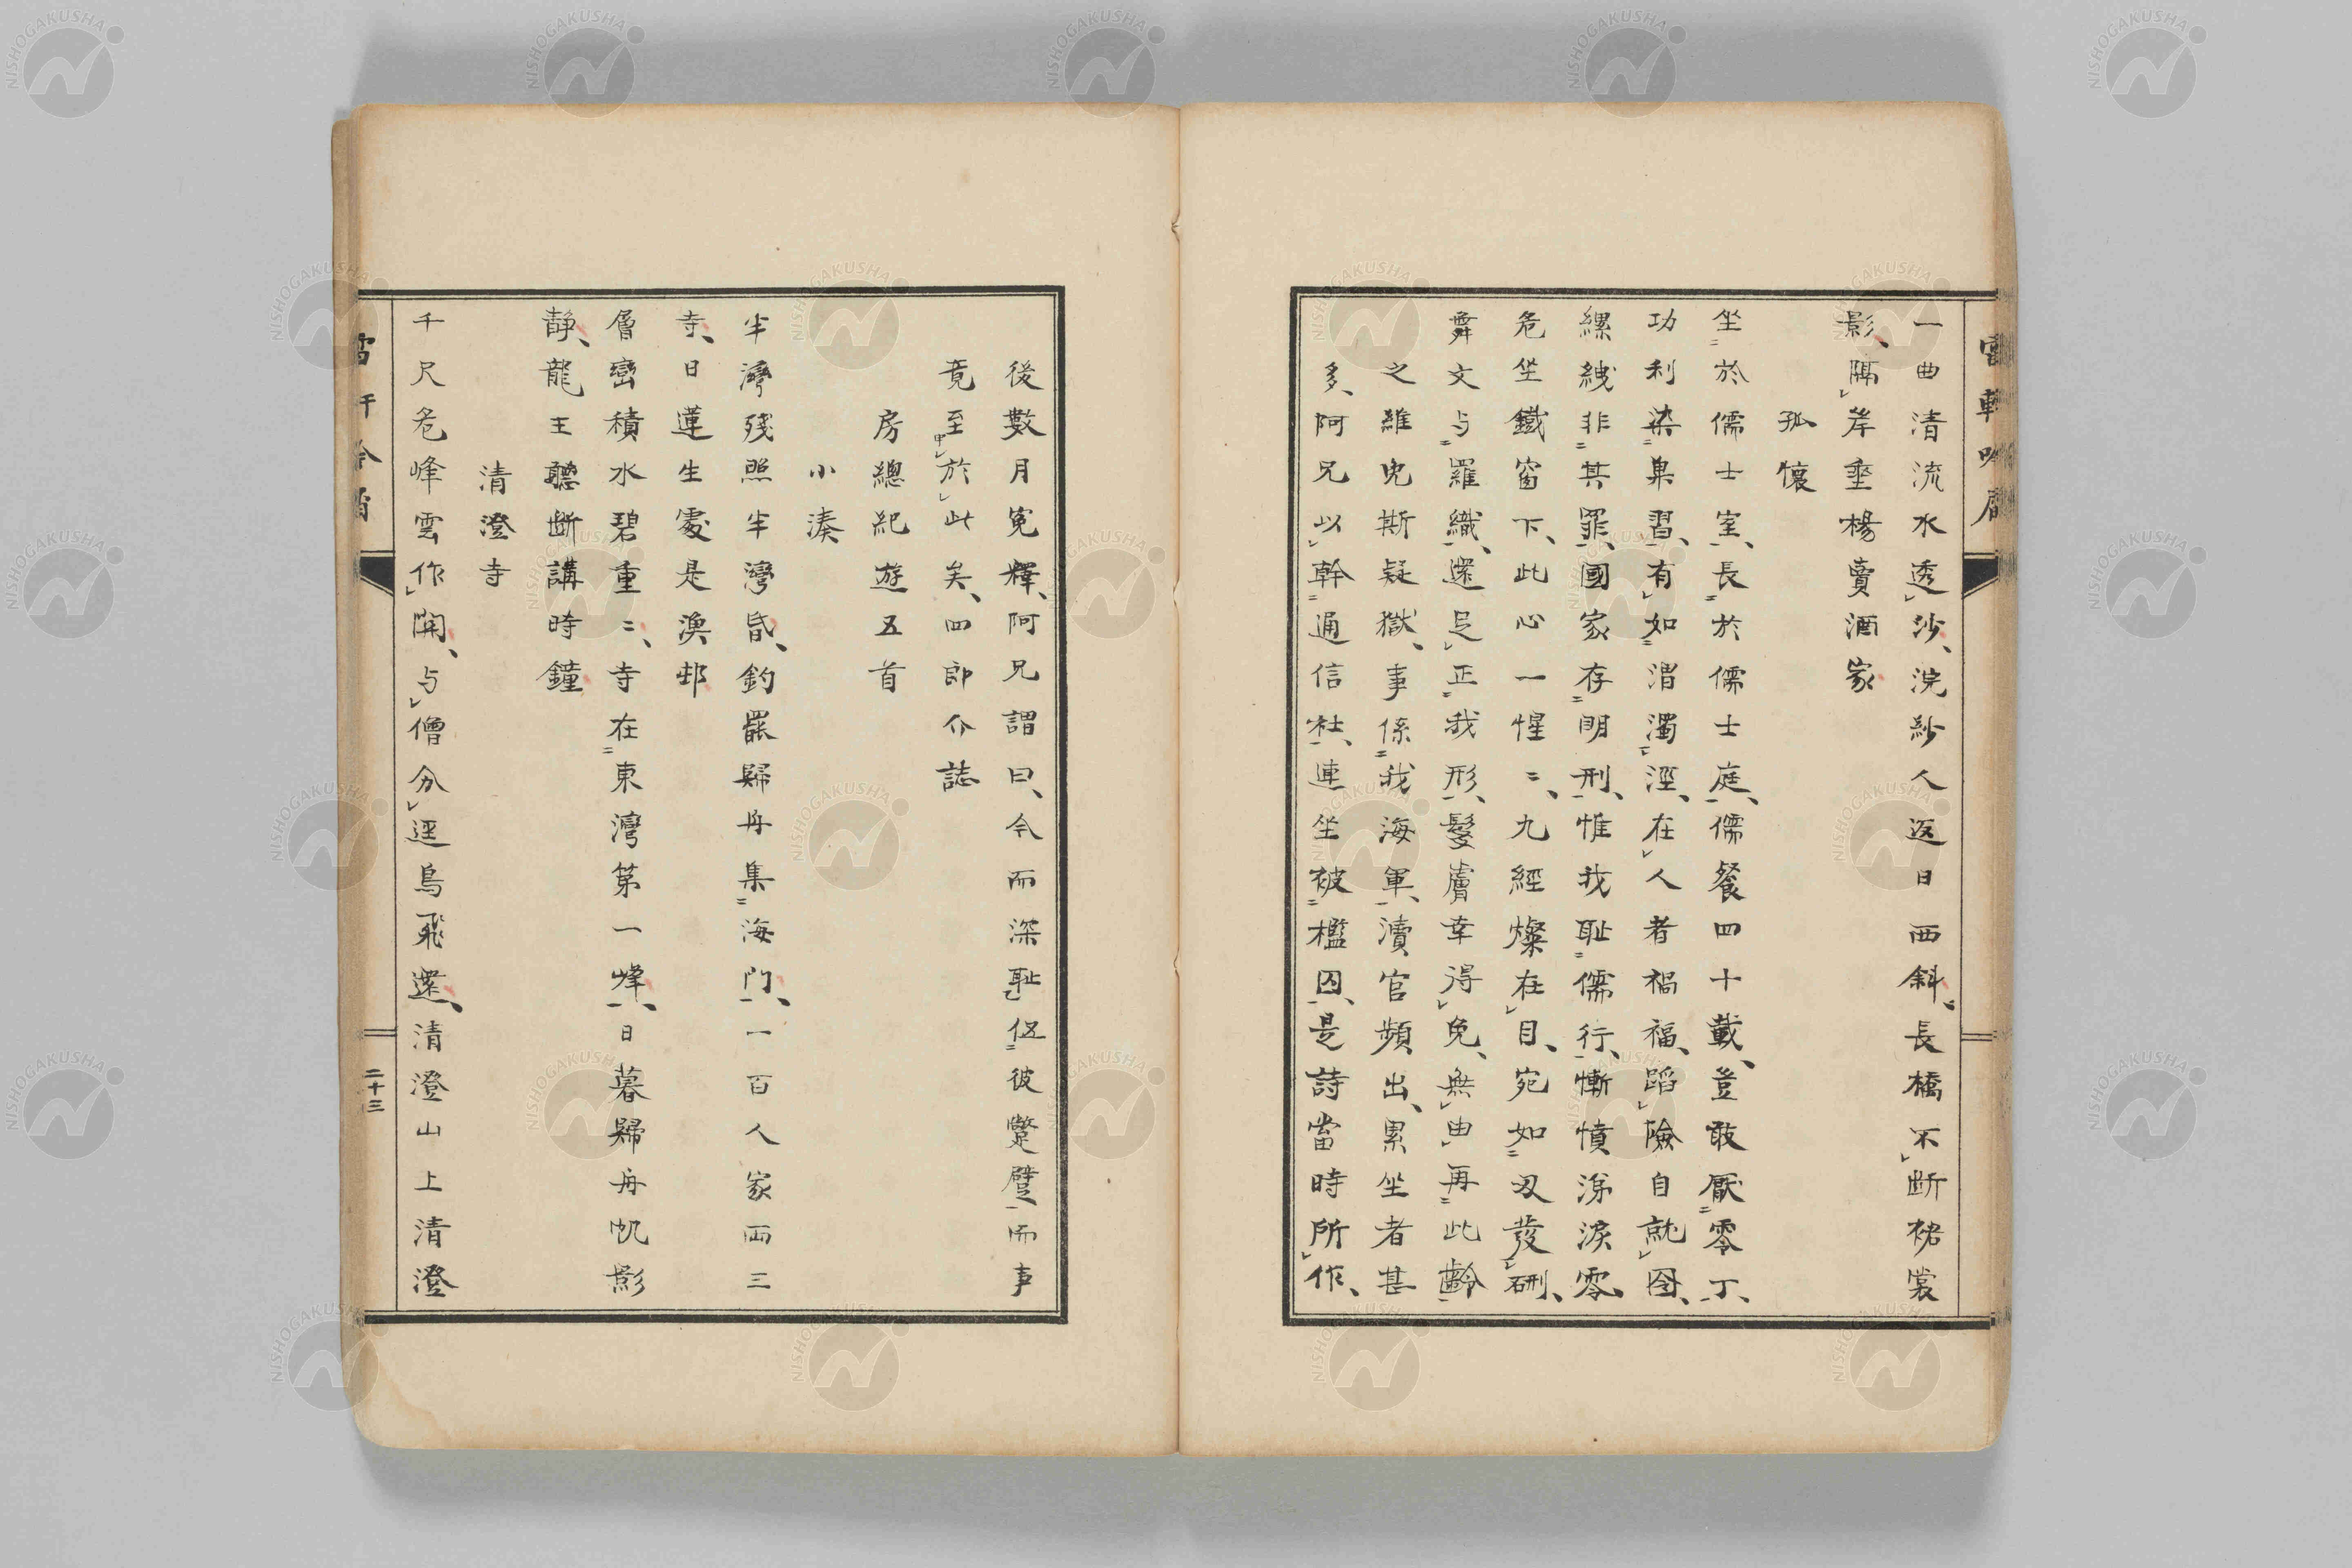 一曲清流水透沙、浣紗人返日西斜、長橋不断裙裳
影、隔岸垂楊賣酒家
孤懷
坐於儒士室、長於儒士庭、儒餐四十載、豈敢厭零丁、
功利染臭習、有如渭濁涇、在人者禍福、蹈險自就囹、
縲絏非其罪、國家存明刑、惟我恥儒行、慚憤涕淚零、
危坐鐵窗下、此心一惺〻、九經燦在目、宛如刄發硎、
舞文与羅織、還足正我形、髮膚幸得免、無由再此齡
之維免斯疑獄、事係我海軍、瀆官頻出、累坐者甚
多、阿兄以幹通信社、連坐被檻囚、是詩當時所作、
後數月冤釋、阿兄謂曰、今而深恥伍彼蹩躄而事
竟至於此矣、四郎介誌
房總紀遊五首
小湊
半灣殘照半灣昏、釣罷歸舟集海門、一百人家両三
寺、日蓮生處是漁邨
層巒積水碧重〻、寺在東灣第一峰、日暮歸舟帆影
靜、龍王聽断講時鐘
清澄寺
千尺危峰雲作開、与僧分逕鳥飛還、清澄山上清澄
二十三
NISHOGAKUSHA